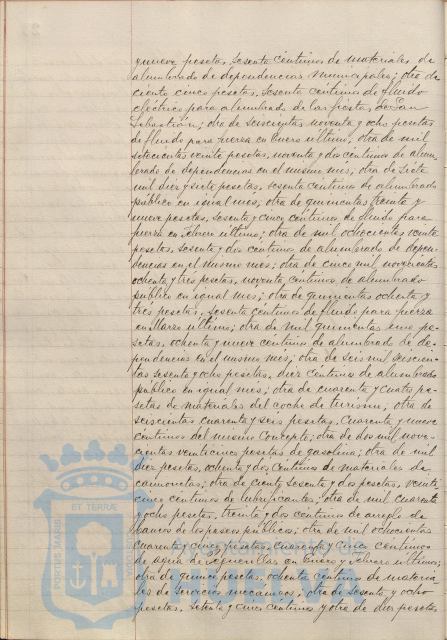 y nueve pesetas, sesenta céntimos de materiales de
alumbrado de dependencias municipales; otra de
ciento cinco pesetas, sesenta céntimos de fluido
eléctrico para alumbrado de las fiestas de San
Sebastián; otra de seiscientas noventa y ocho pesetas
de fluido para fuerza en Enero último; otra de mil
setecientas veinte pesetas, noventa y dos céntimos de alum-
brado de dependencias en el mismo mes; otra de siete
mil diez y siete pesetas, sesenta céntimos de alumbrado
público en igual mes; otra de quinientas treinta y
nueve pesetas, sesenta y cinco céntimos de fluido para
fuerza en Febrero último; otra de mil ochocientas veinte
pesetas, sesenta y dos céntimos de alumbrado de depen-
dencias en el mismo mes; otra de cinco mil novecientas
ochenta y tres pesetas, noventa céntimos de alumbrado
público en igual mes; otra de quinientas ochenta y
tres pesetas, sesenta céntimos de fluido para fuerza
en Marzo último; otra de mil quinientas once pe-
setas, ochenta y nueve céntimos de alumbrado de de-
pendencias en el mismo mes; otra de seis mil seiscien-
tas sesenta y ocho pesetas, diez céntimos de alumbrado
público en igual mes; otra de cuarenta y cuatro pe-
setas de materiales del coche de turismo; otra de
seiscientas cuarenta y seis pesetas, cuarenta y nueve
céntimos del mismo concepto; otra de dos mil nove-
cientas veinticinco pesetas de gasolina; otra de mil
diez pesetas, ochenta y dos céntimos de materiales de
camionetas; otra de ciento sesenta y dos pesetas, veinti-
cinco céntimos de lubrificantes; otra de mil cuarenta
y ocho pesetas, treinta y dos céntimos de arreglo de
bancos de los paseos públicos; otra de mil ochocientas
cuarenta y cinco pesetas, cuarenta y cinco céntimos
de agua de en Enero y Febrero últimos;
otra de quince pesetas, ochenta céntimos de materia-
les de servicios mecánicos; otra de sesenta y ocho
pesetas, setenta y cinco céntimos y otra de diez pesetas
ET TERRÆ
PORTUS MARIS
Ayuntamiento de
HUELVA